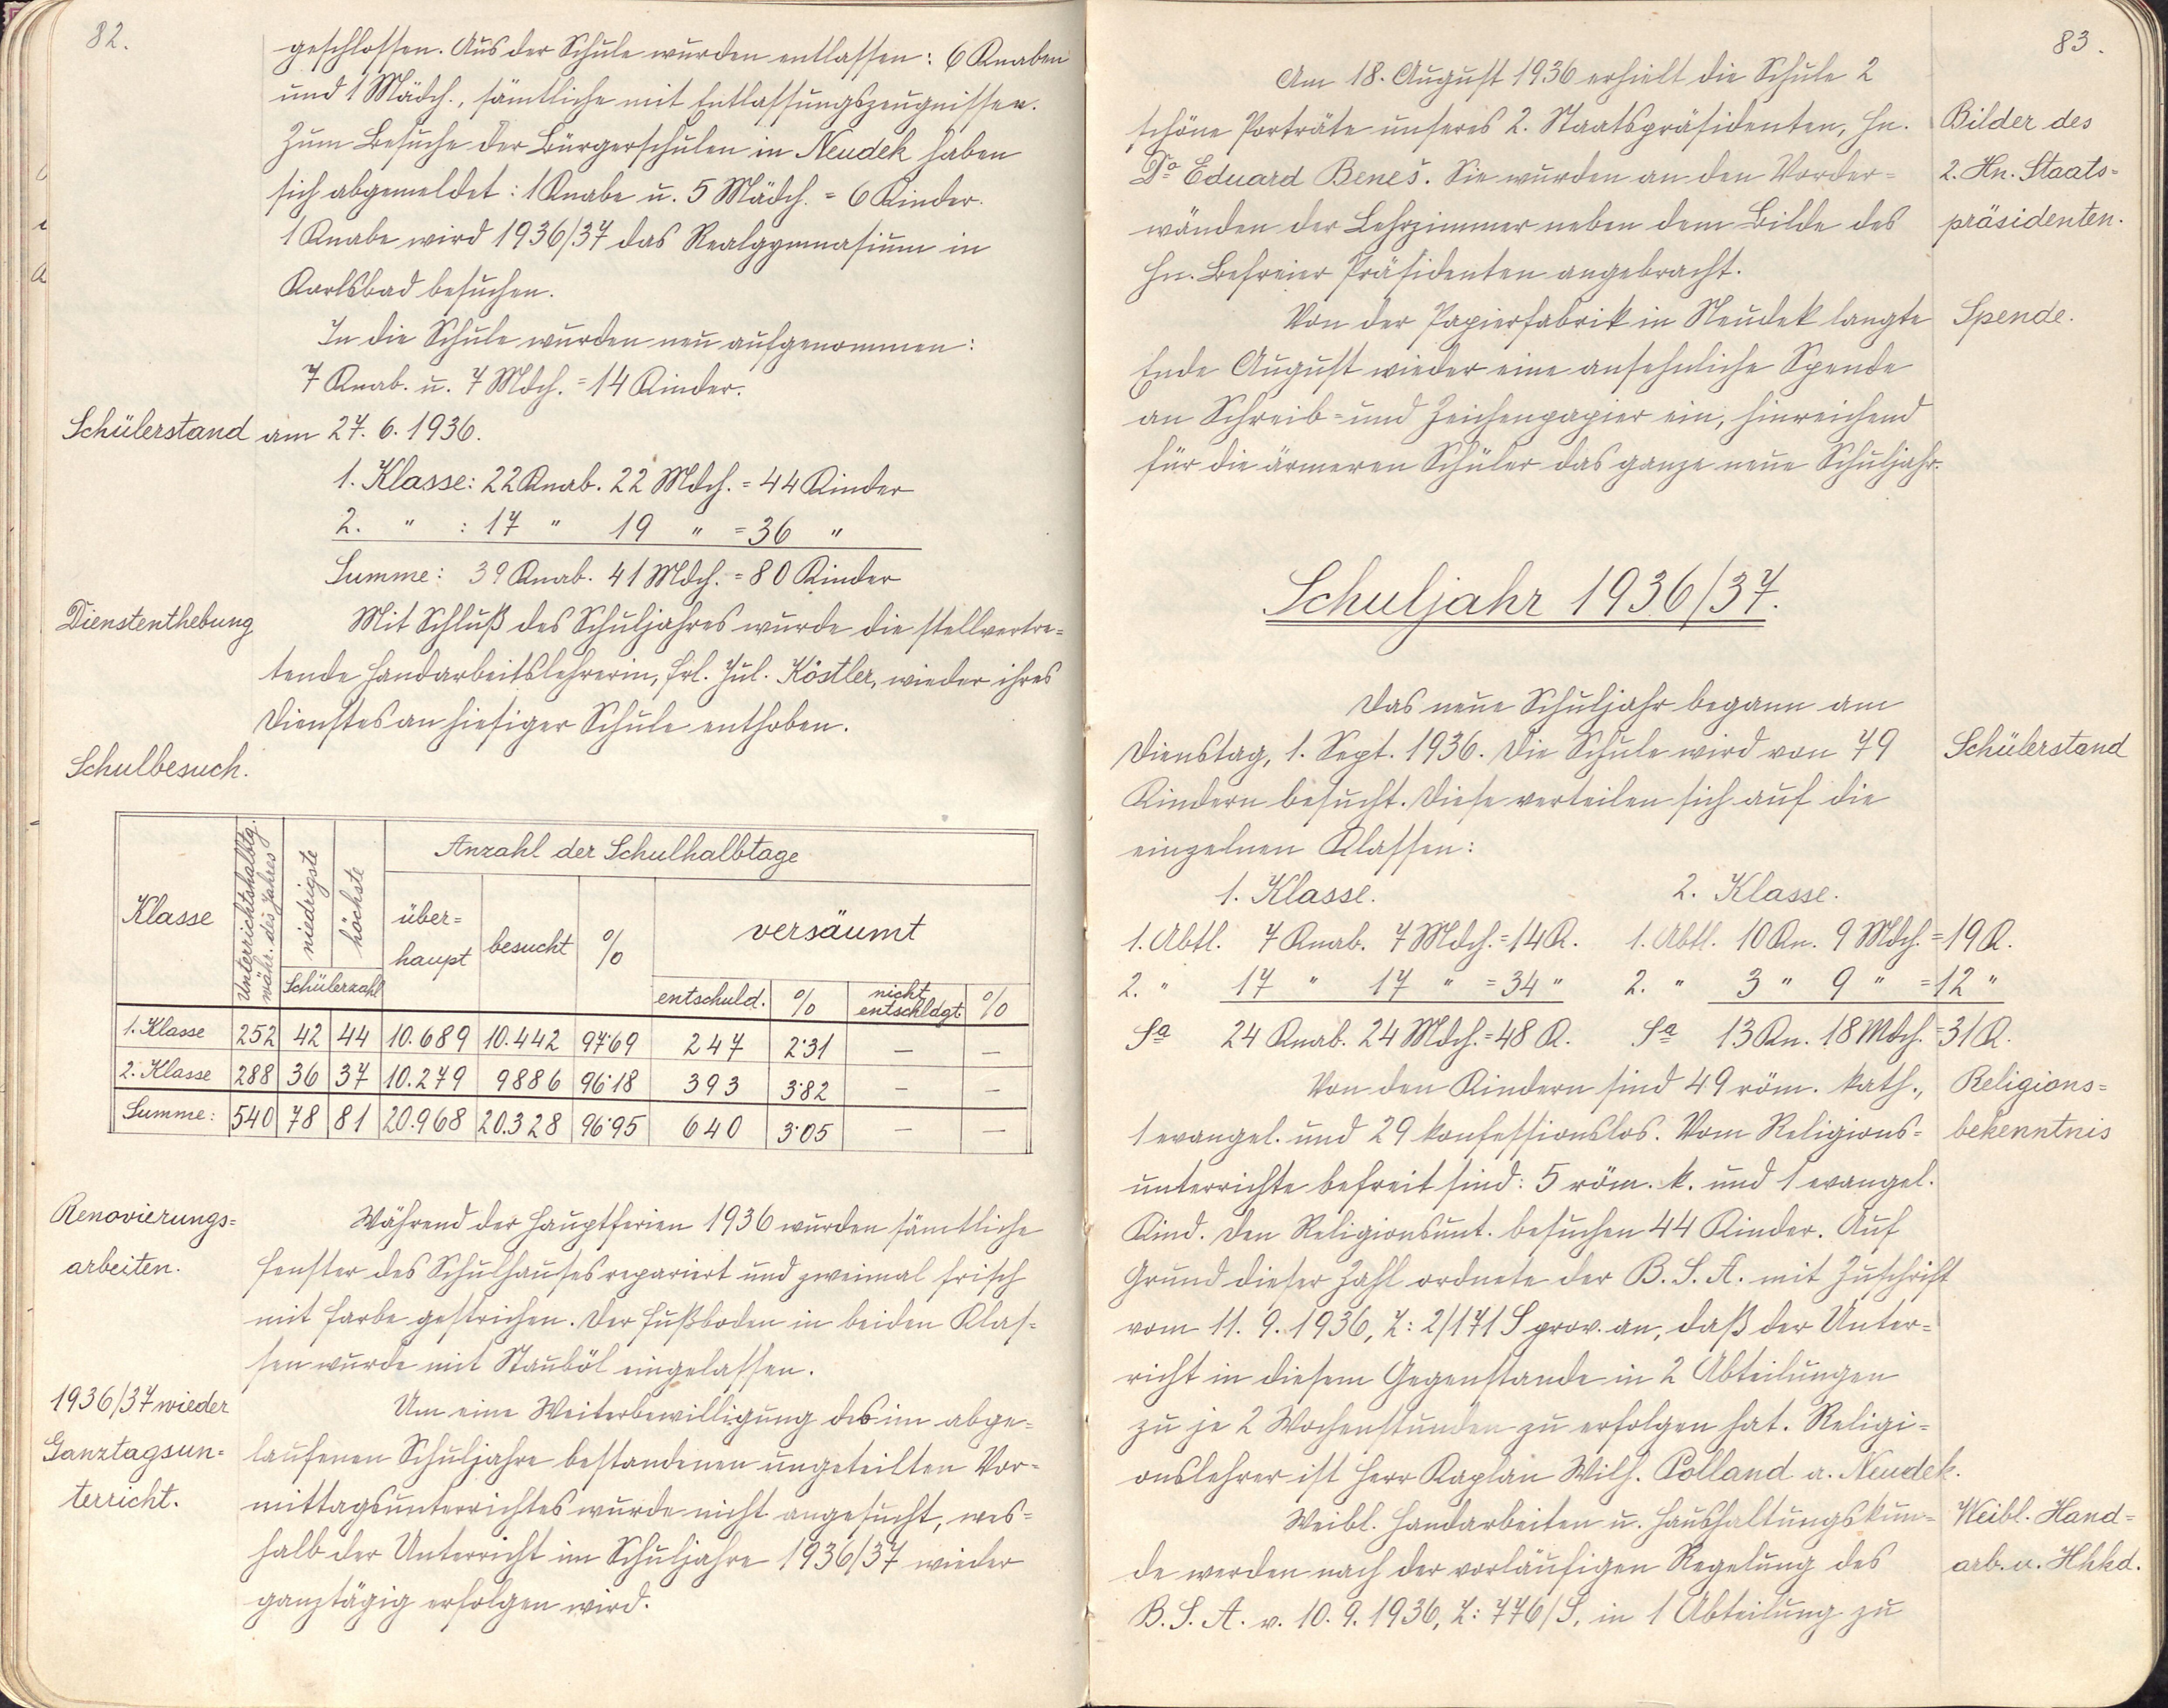 82.
geschlossen. Aus der Schule wurden entlassen: 6 Knaben
und 1 Mädch., sämtliche mit Entlassungszeugnissen.
Zum Besuche der Bürgerschulen in Neudek haben
sich abgemeldet: 1 Knabe u. 5 Mädch. = 6 Kinder.
1 Knabe wird 1936/37 das Realgymnasium in
Karlsbad besuchen.
In die Schule wurden neu aufgenommen:
7 Knab. u. 7 Mdch. = 14 Kinder.
Schülerstand am 27. 6. 1936.
1. Klasse: 22 Knab. 22 Mdch. = 44 Kinder
2. " : 17 " 19 " = 36 "
Summe: 39 Knab. 41 Mdch. = 80 Kinder
Dienstenthebung Mit Schluß des Schuljahres wurde die stellvertre=
tende Handarbeitslehrerin, Frl. Jul. Köstler, wieder ihres
Dienstes an hiesiger Schule enthoben.
Schulbesuch.
Klasse
Unterrichtshalbtg.
währ. des Jahres
niedrigste
höchste
Schülerzahl
Anzahl der Schulhalbtage
über=
haupt
besucht
%
versäumt
entschuld. % nicht entschldgt %
1. Klasse 252 42 44 10.689 10.442 97·69 247 2·31 — —
2. Klasse 288 36 37 10.279 9886 96·18 393 3·82 — —
Summe: 540 78 81 20.968 20.328 96·95 640 3·05 — —
Renovierungs=
arbeiten.
Während der Hauptferien 1936 wurden sämtliche
Fenster des Schulhauses repariert und zweimal frisch
mit Farbe gestrichen. Der Fußboden in beiden Klas=
sen wurde mit Stauböl eingelassen.
1936/37 wieder
Ganztagsun=
terricht.
Um eine Weiterbewilligung des im abge=
laufenen Schuljahre bestandenen ungeteilten Vor=
mittagsunterrichtes wurde nicht angesucht, wes=
halb der Unterricht im Schuljahre 1936/37 wieder
ganztägig erfolgen wird.
83.
Am 18. August 1936 erhielt die Schule 2
schöne Porträte unseres 2. Staatspräsidenten, Hn.
Dr Eduard Beneš. Sie wurden an den Vorder=
wänden der Lehrzimmer neben dem Bilde des
Hn. Befreier Präsidenten angebracht.
Bilder des
2. Hn. Staats=
präsidenten.
Von der Papierfabrik in Neudek langte
Ende August wieder eine ansehnliche Spende
an Schreib= und Zeichenpapier ein, hinreichend
für die ärmeren Schüler das ganze neue Schuljahr.
Spende.
Schuljahr 1936/37.
Das neue Schuljahr begann am
Dienstag, 1. Sept. 1936. Die Schule wird von 79
Kindern besucht. Diese verteilen sich auf die
einzelnen Klassen:
Schülerstand
1. Klasse. 2. Klasse.
1. Abtl. 7 Knab. 7 Mdch. = 14 K. 1. Abtl. 10 Kn. 9 Mdch. = 19 K.
2. " 17 " 17 " = 34 " 2. " 3 " 9 " = 12 "
Sa 24 Knab. 24 Mdch. = 48 K. Sa 13 Kn. 18 Mdch. = 31 K.
Von den Kindern sind 49 röm. kath.,
1 evangel. und 29 konfessionslos. Vom Religions=
unterrichte befreit sind: 5 röm. k. und 1 evangel.
Kind. Den Religionsunt. besuchen 44 Kinder. Auf
Grund dieser Zahl ordnete der B. S. A. mit Zuschrift
vom 11. 9. 1936, Z: 2/171 S prov. an, daß der Unter=
richt in diesem Gegenstande in 2 Abteilungen
zu je 2 Wochenstunden zu erfolgen hat. Religi=
onslehrer ist Herr Kaplan Wilh. Polland a. Neudek.
Religions=
bekenntnis
Weibl. Handarbeiten u. Haushaltungskun=
de werden nach der vorläufigen Regelung des
B. S. A. v. 10. 9. 1936, Z: 776/S, in 1 Abteilung zu
Weibl. Hand=
arb. u. Hhkd.